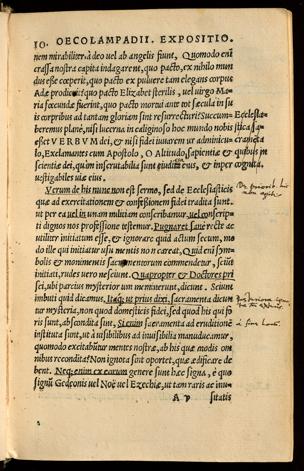 10. OECOLAMPADII. EXPOSITIO.
nem mirabiliter, à deo vel ab angelis fiunt, Quomodo enī
crassa nostra capita indagarent, quo pacto, ex nihilo mun
dus esse cœperit, quo pacto ex puluere tam elegans corpus
Adæ prodierit: quo pacto Elizabet sterilis, vel uirgo Ma
ria fœcundæ fuerint, quo pacto mortui ante tot sæcula in su
is corporibus ad tantam gloriam sint resurrecturi: Succum
beremus planè, nisi lucerna in caliginoso hoc mundo nobis
esset VERBVM dei, & nisi fidei iuuarem ur adminicu
lo, Exclamantes cum Apostolo, O Altitudo sapientiæ &
scientiæ dei, quàm inscrutabilia sunt iudicia eius, & in
uestigabiles uiæ eius.
Verum de his nunc non est sermo, sed de Ecclesiasticis
quæ ad exercitationem & confeßionem fidei tradita sunt.
ut per ea uel in unum multiam conscribamur, uel conscrip-
ti dignos nos professione testemur. Pugnaret sanè recte ac
militer initiatum esse, & ignorare quid actum secum, mo
do ille qui initiatur usu mentis non careat, Quid enī symbo
lis & monimentis sacramentorum commendetur, sciūt
initiati, rudes uero nesciunt. Quapropter & Doctores pri
sci, ubi parcius mysteriorum meminerunt, dicunt. Sciunt
imbuti quid dicamus, Itaq; ut prius dixi, sacramenta dicun
tur mysteria, non quod domesticis fidei, sed quod his qui fo
ris sunt, abscondita sint, Si enim sacramenta ad eruditionē
instituta sunt, ut à uisibilibus ad inuisibilia manuducamur,
quomodo excitabūtur mentes nostræ, ab his quæ modis om
nibus recondita? Non ignota sunt oportet, quæ ædificare de
bent. Neq; enim ex earum genere sunt hæc signa, è quo
signū Gedeonis uel Noë uel Ezechiæ, ut tam raris ac inu-
A v sitatis